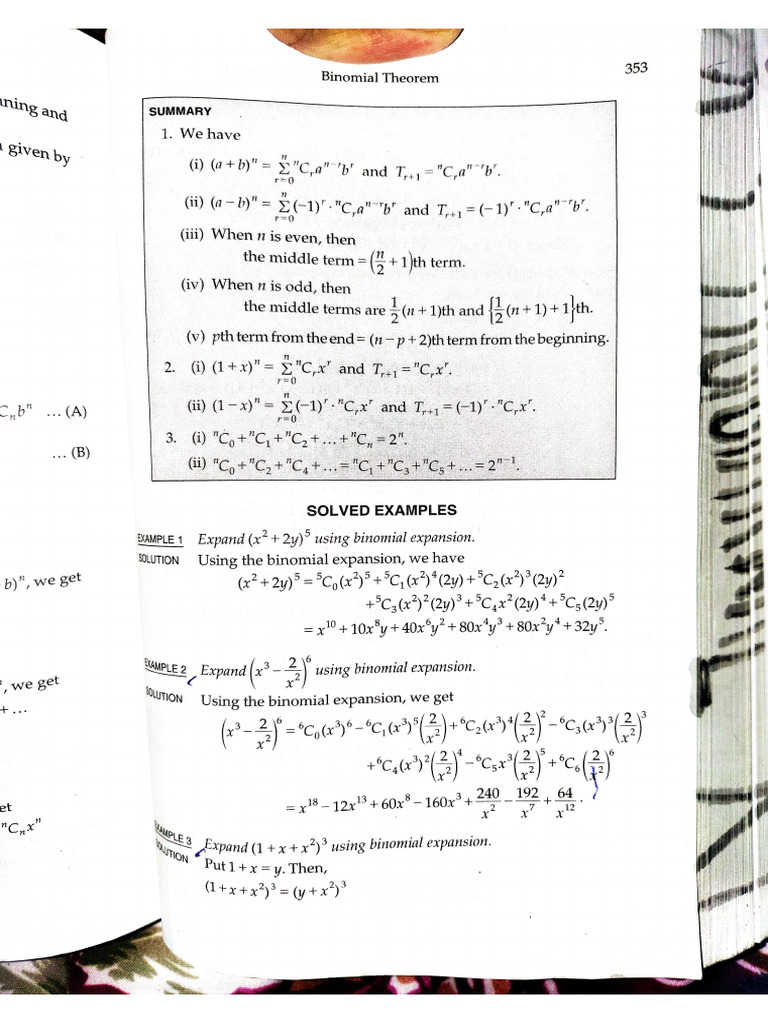 Binomial Theorem 353
SUMMARY
1. We have
(i) (a + b)ⁿ = Σ_{r=0}^{n} ⁿCᵣaⁿ⁻ʳbʳ and Tᵣ₊₁ = ⁿCᵣaⁿ⁻ʳbʳ.
(ii) (a − b)ⁿ = Σ_{r=0}^{n} (−1)ʳ · ⁿCᵣaⁿ⁻ʳbʳ and Tᵣ₊₁ = (−1)ʳ · ⁿCᵣaⁿ⁻ʳbʳ.
(iii) When n is even, then
the middle term = (n/2 + 1)th term.
(iv) When n is odd, then
the middle terms are 1/2(n + 1)th and {1/2(n + 1) + 1}th.
(v) pth term from the end = (n − p + 2)th term from the beginning.
2. (i) (1 + x)ⁿ = Σ_{r=0}^{n} ⁿCᵣxʳ and Tᵣ₊₁ = ⁿCᵣxʳ.
(ii) (1 − x)ⁿ = Σ_{r=0}^{n} (−1)ʳ · ⁿCᵣxʳ and Tᵣ₊₁ = (−1)ʳ · ⁿCᵣxʳ.
3. (i) ⁿC₀ + ⁿC₁ + ⁿC₂ + … + ⁿCₙ = 2ⁿ.
(ii) ⁿC₀ + ⁿC₂ + ⁿC₄ + … = ⁿC₁ + ⁿC₃ + ⁿC₅ + … = 2ⁿ⁻¹.
SOLVED EXAMPLES
EXAMPLE 1 Expand (x² + 2y)⁵ using binomial expansion.
SOLUTION Using the binomial expansion, we have
(x² + 2y)⁵ = ⁵C₀(x²)⁵ + ⁵C₁(x²)⁴(2y) + ⁵C₂(x²)³(2y)²
+ ⁵C₃(x²)²(2y)³ + ⁵C₄x²(2y)⁴ + ⁵C₅(2y)⁵
= x¹⁰ + 10x⁸y + 40x⁶y² + 80x⁴y³ + 80x²y⁴ + 32y⁵.
EXAMPLE 2 Expand (x³ − 2/x²)⁶ using binomial expansion.
SOLUTION Using the binomial expansion, we get
(x³ − 2/x²)⁶ = ⁶C₀(x³)⁶ − ⁶C₁(x³)⁵(2/x²) + ⁶C₂(x³)⁴(2/x²)² − ⁶C₃(x³)³(2/x²)³
+ ⁶C₄(x³)²(2/x²)⁴ − ⁶C₅x³(2/x²)⁵ + ⁶C₆(2/x²)⁶
= x¹⁸ − 12x¹³ + 60x⁸ − 160x³ + 240/x² − 192/x⁷ + 64/x¹².
EXAMPLE 3 Expand (1 + x + x²)³ using binomial expansion.
SOLUTION Put 1 + x = y. Then,
(1 + x + x²)³ = (y + x²)³
and
given by
Cₙbⁿ … (A)
… (B)
b)ⁿ, we get
, we get
+ …
ⁿCₙxⁿ